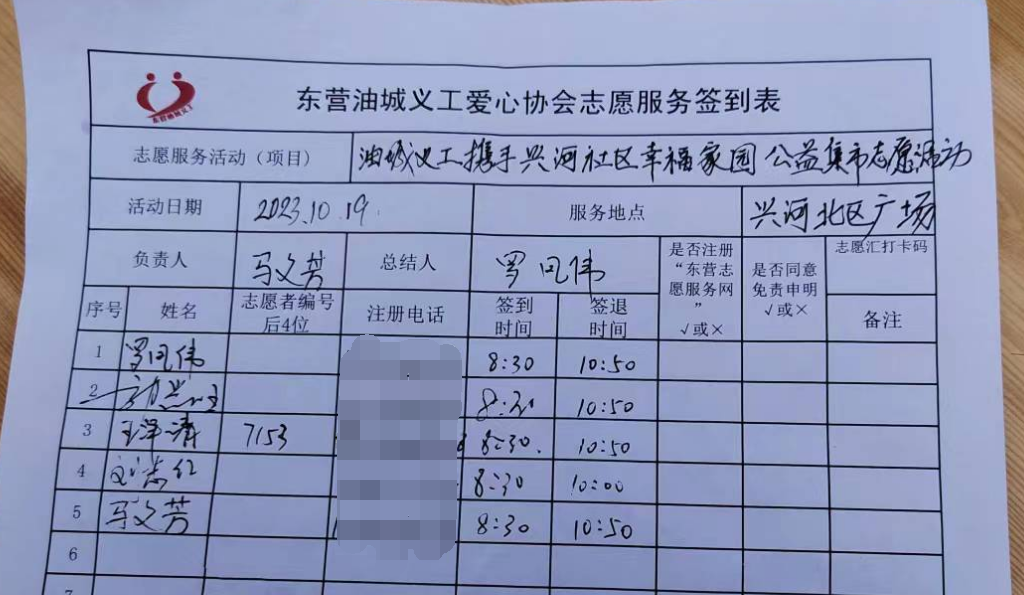 东营油城义工
东营油城义工爱心协会志愿服务签到表
志愿服务活动（项目） 油城义工携手兴河社区幸福家园公益集市志愿活动
活动日期 2023.10.19. 服务地点 兴河北区广场
负责人 马文芳 总结人 罗同伟 是否注册“东营志愿服务网”√或× 是否同意免责申明√或× 志愿汇打卡码
序号 姓名 志愿者编号后4位 注册电话 签到时间 签退时间 备注
1 罗同伟 8:30 10:50
2 8:30 10:50
3 王泽清 7153 8:30. 10:50
4 刘志红 8:30 10:00
5 马文芳 8:30 10:50
6
7